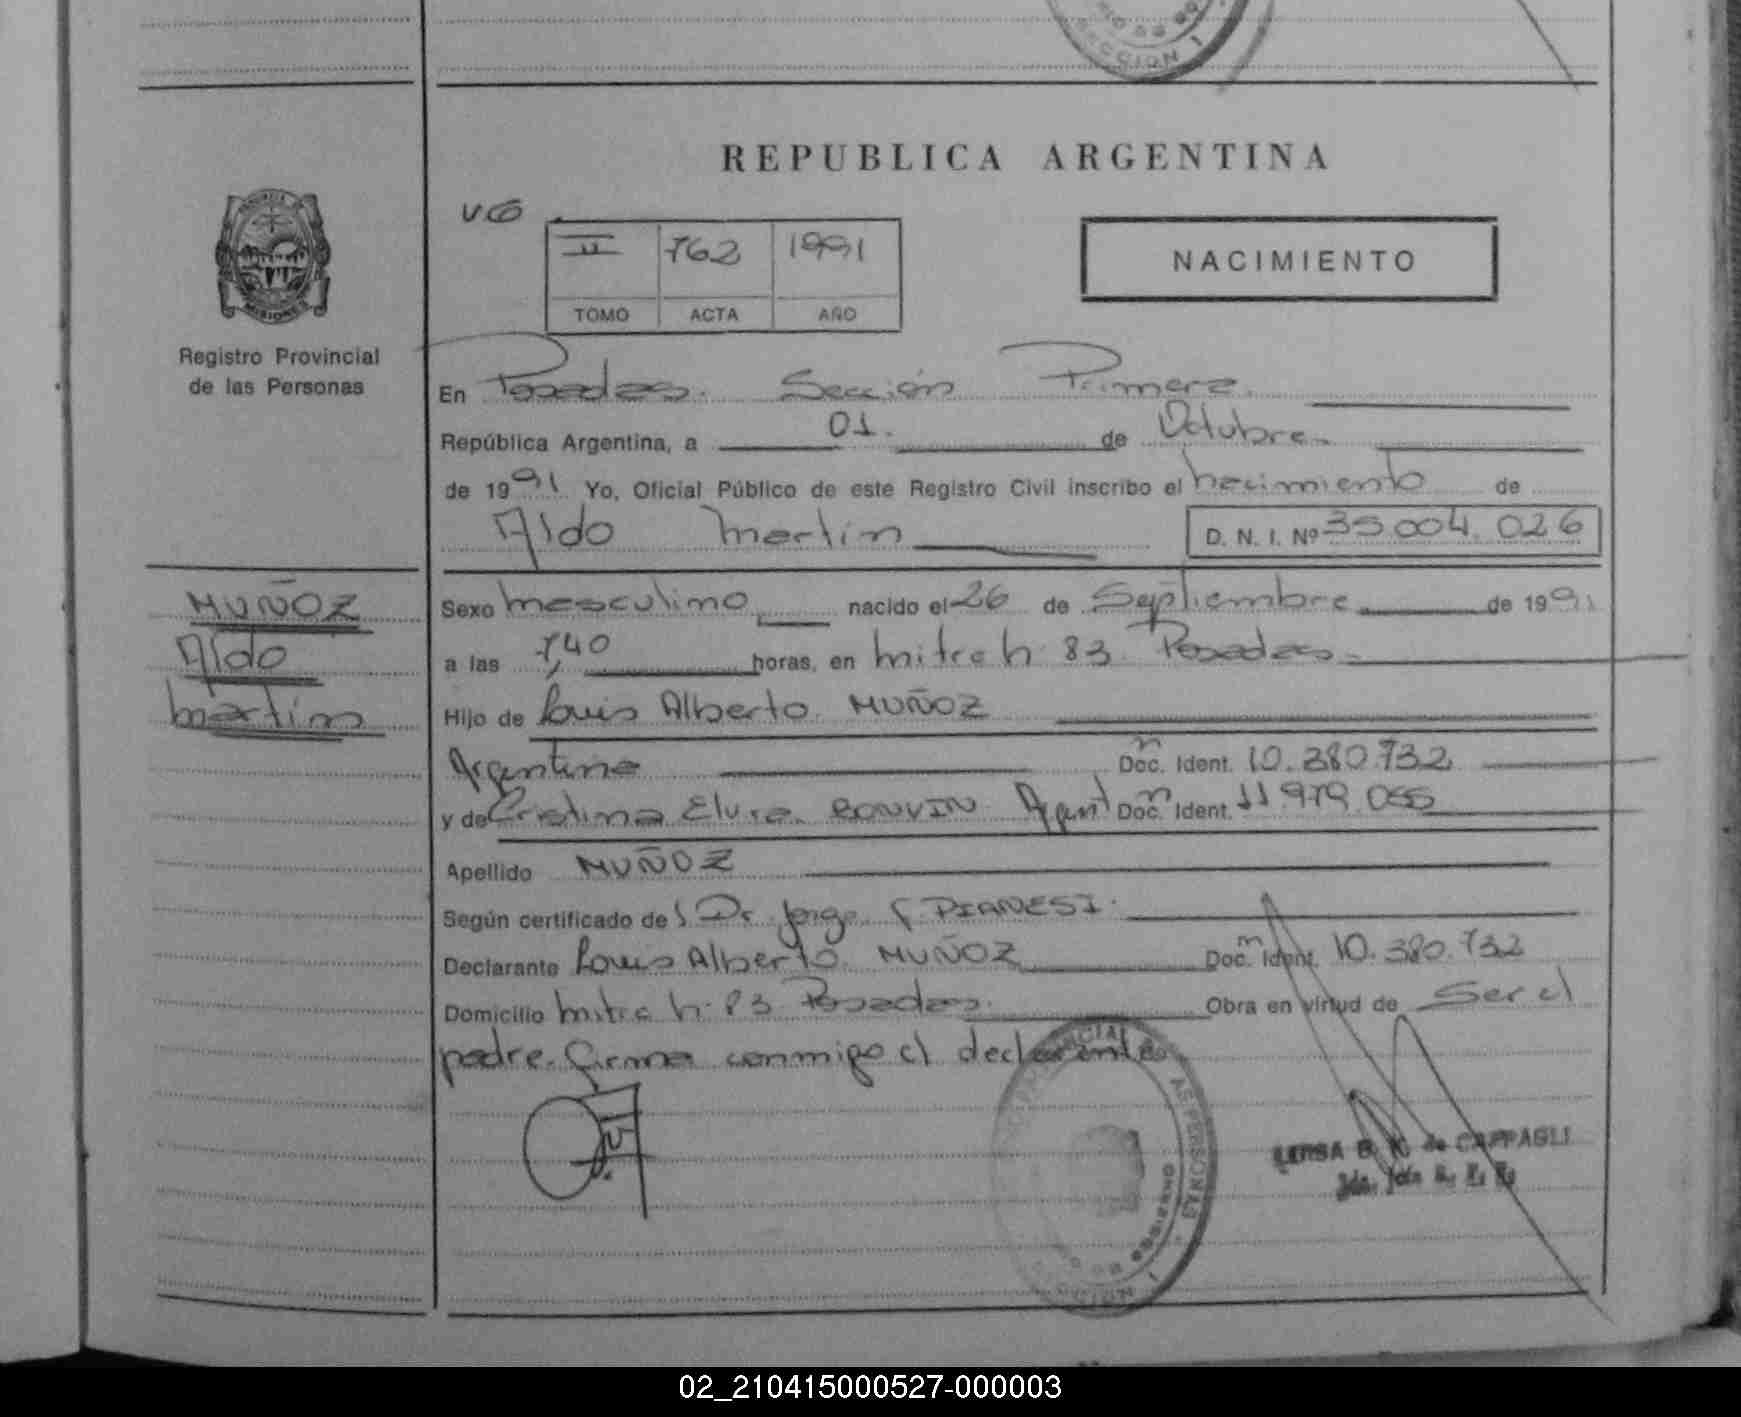 SECCION 1
REPUBLICA ARGENTINA
MISIONES
Registro Provincial
de las Personas
II 762 1991
TOMO ACTA AÑO
NACIMIENTO
En Posadas. Sección Primera.
República Argentina, a 01. de Octubre.
de 1991 Yo, Oficial Público de este Registro Civil inscribo el nacimiento de
Aldo Martín D. N. I. Nº 35.004.026
MUÑOZ
Aldo
Martín
Sexo masculino nacido el 26 de Septiembre de 1991
a las 7,40 horas, en mitre n: 83 Posadas
Hijo de Luis Alberto MUÑOZ
Argentino Doc. Ident. 10.380.732
y de Cristina Elvira BONVIN Argent Doc. Ident. 11.979.055
Apellido MUÑOZ
Según certificado del Dr. Jorge PIANESI.
Declarante Luis Alberto MUÑOZ Doc. Ident. 10.380.732
Domicilio mitre n: 83 Posadas. Obra en virtud de Ser el
padre. firma conmigo el declarante
LUISA B. K. de CAPPAGLI
02_210415000527-000003